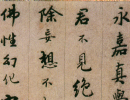 永嘉真覺
君不見絕
除妄想不
佛性幻化